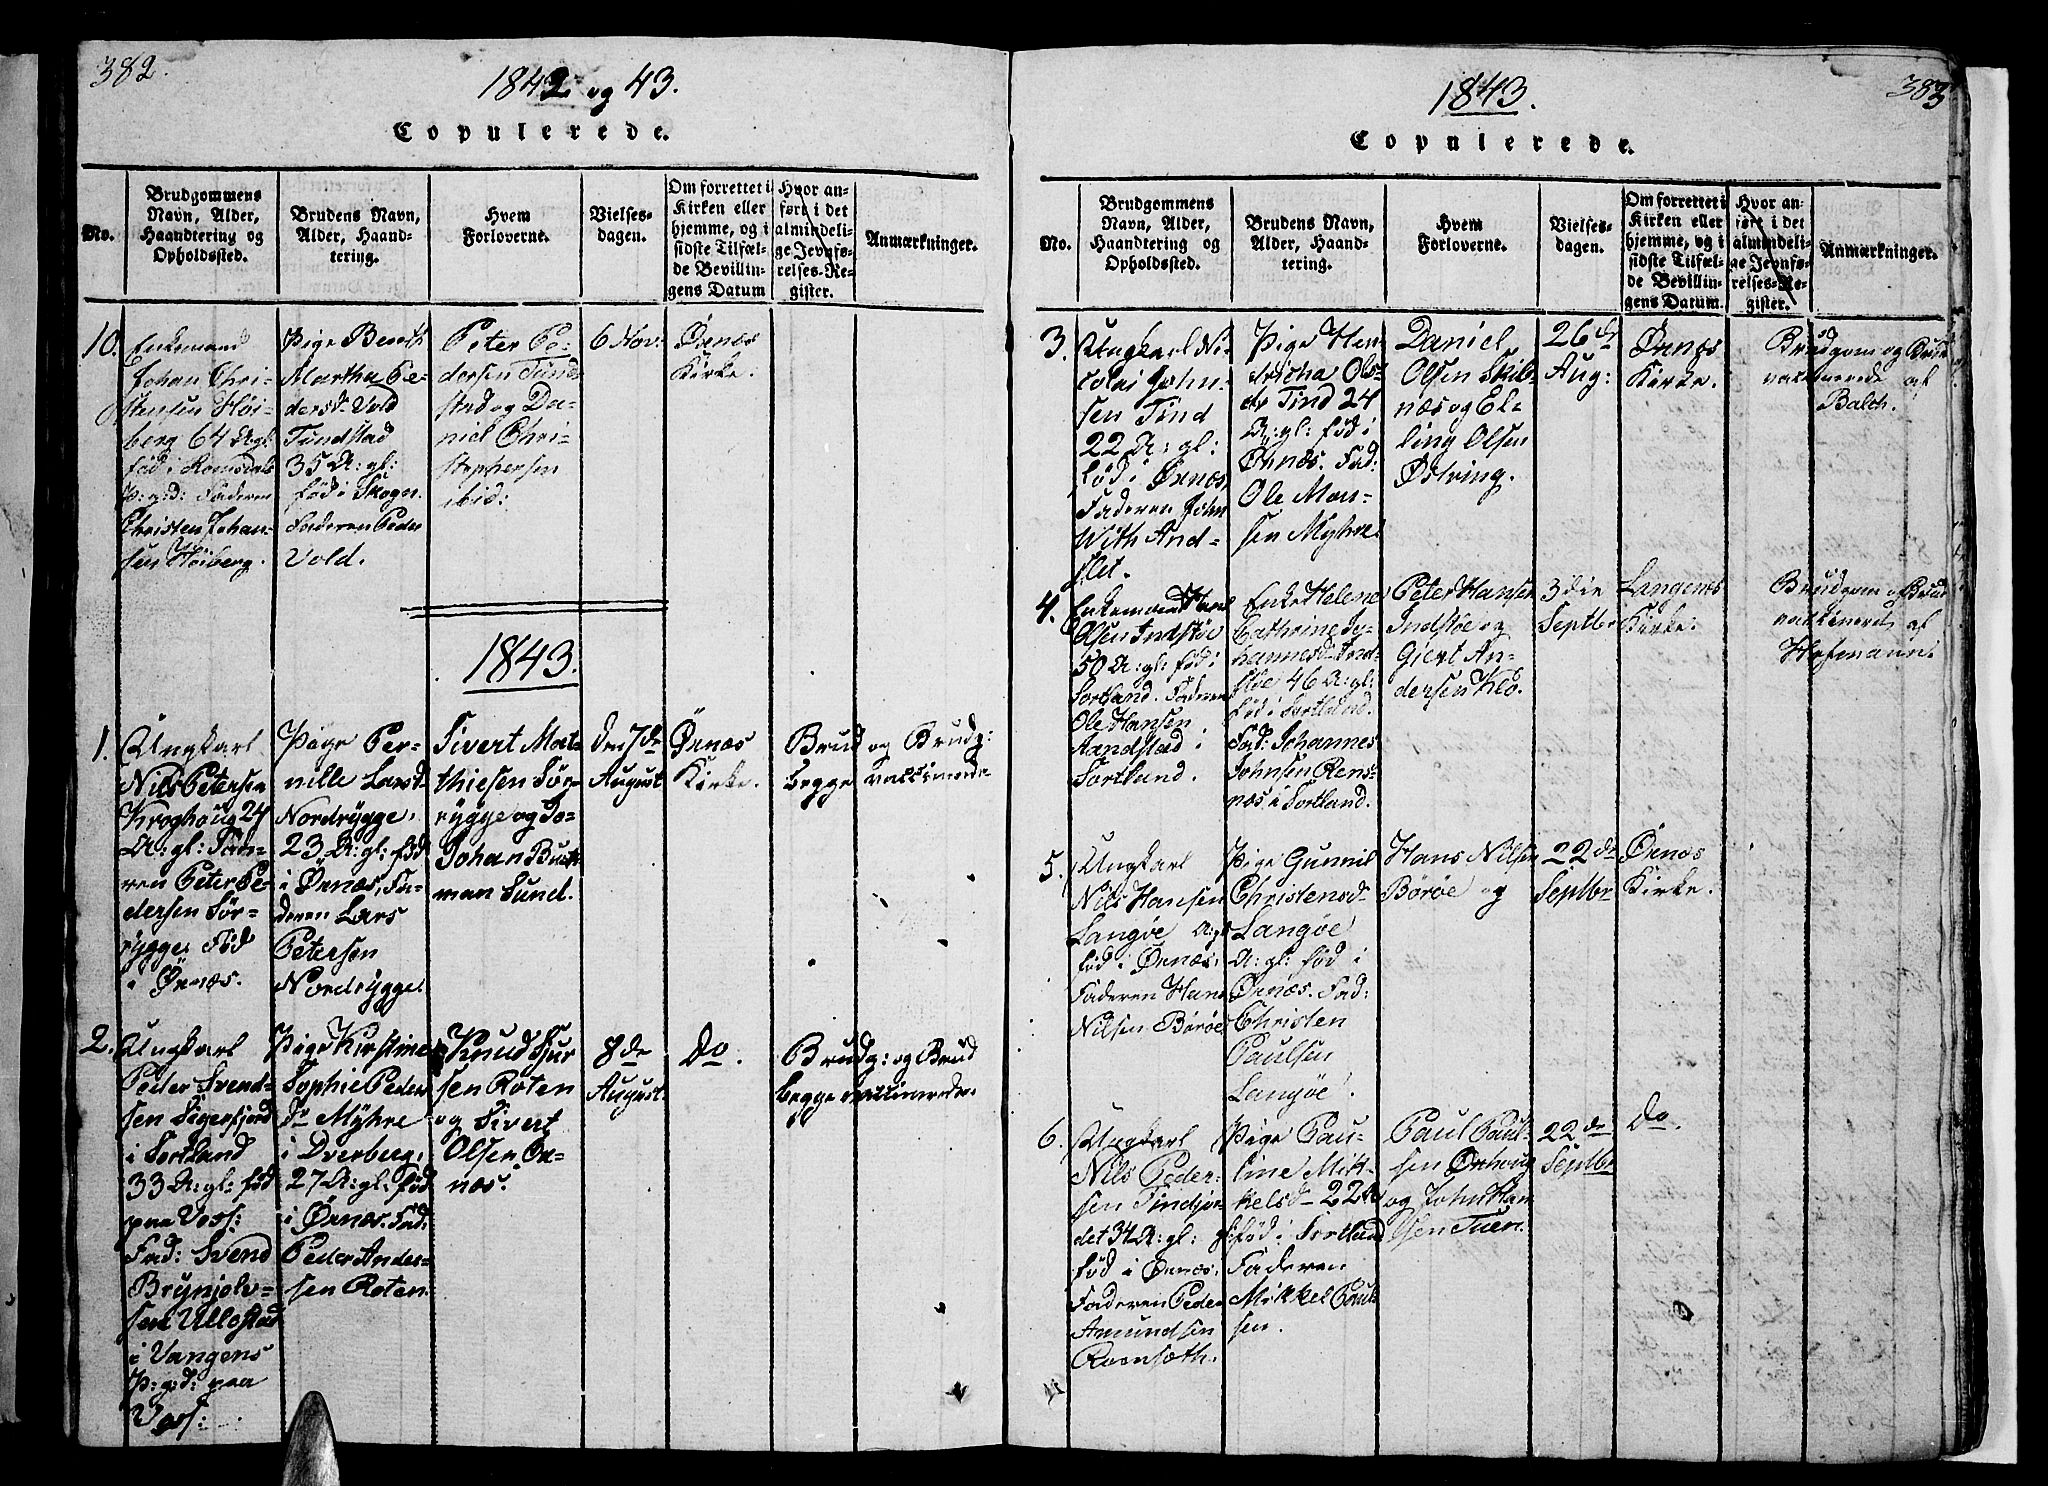 382.
1842 og 43.
Copulerede.
No.
Brudgommens
Navn, Alder,
Haandtering og
Opholdssted.
Brudens Navn,
Alder, Haand-
tering.
Hvem
Forloverne.
Vielses-
dagen.
Om forrettet i
Kirken eller
hjemme, og i
sidste Tilfæl-
de Bevillin-
gens Datum
Hvor an-
ført i det
almindeli-
ge Jevnfø-
relses-Re-
gister.
Anmærkninger.
10.
Enkemand
Johan Chri-
stensen Høi-
berg 64 A: gl:
fød i Romsdals
P: g: d: Faderen
Christen Johan-
sen Høiberg.
Pige Berith
Martha Pe-
dersd. Vold
Tundstad
35 A: gl:
fød i Skogn.
Faderen Peder
Vold.
Peter Pe-
dersen Tund-
stad og Da-
niel Chri-
stophersen
ibid:
6 Nov:
Ørnæs
Kirke.
1843.
1.
Ungkarl
Nils Petersen
Kroghoug 24
A: gl: Fade-
ren Peter Pe-
dersen Sør-
rygge, Fød
i Ørnæs.
Pige Per-
nille Larsd.
Nordrygge,
23 A: gl: fød
i Ørnæs, Fa-
deren Lars
Petersen
Nordrygge.
Sivert Mat-
thiesen Sør-
rygge og Jo-
Johan Buck-
man Sund.
den 7de
August
Ørnæs
Kirke.
Brud og Brudg:
begge vaccinerede
2.
Ungkarl
Peder Svend-
sen Sigerfjord
i Sortland
33 A: gl: fød
paa Voss:
Fad: Svend
Brynjolv-
sen Ullestad
i Vangens
P: g: d: paa
Voss:
Pige Kirstine
Sophie Peders
Dr Myhre
i Dverberg,
27 A: gl: fød
i Ørnæs. Fad:
Peder Anders-
sen Roten.
Knud Siur
sen Roten
og Sivert
Olsen Ør-
næs.
8de
August.
Do.
Brudg: og Brud
begge vaccinerede.
383
1843.
Copulerede.
No.
Brudgommens
Navn, Alder,
Haandtering og
Opholdssted.
Brudens Navn,
Alder, Haand-
tering.
Hvem
Forloverne.
Vielses-
dagen.
Om forrettet i
Kirken eller
hjemme, og i
sidste Tilfæl-
de Bevillin-
gens Datum.
Hvor an-
ført i det
almindeli-
ge Jevnfø-
relses-Re-
gister.
Anmærkninger.
3.
Ungkarl Ni-
colai John-
sen Tind
22 A: gl:
fød i Ørnæs
Faderen John
With And-
slet.
Pige Hen-
dricha Ols-
dr Tind 24
A: gl: fød i
Ørnæs. Fad:
Ole Mon-
sen Myhre.
Daniel
Olsen Skib-
næs og El-
ling Olsen
Østring.
26de
Aug:
Ørnæs
Kirke.
Brudgom og Brud
vaccinerede af
Balch.
4.
Enkemand
Olsen Indstøe
50 A: gl: fød i
Sortland. Faderen
Ole Hansen
Aandstad i
Sortland.
Enke Helene
Cathrine Jo-
hannesd. Ind-
støe 46 A: gl:
fød i Sortland.
Fad: Johannes
Johnsen Rens-
næs i Sortland.
Peter Hansen
Indstøe og
Giert An-
dersen Klo.
3die
Septbr
Langenæs
Kirke.
Brudgom og Brud
vaccineret af
Hofmann.
5.
Ungkarl
Nils Hansen
Langøe A: gl:
fød i Ørnæs.
Faderen Hans
Nilsen Børøe
Pige Gunnil
Christensd.
Langøe
A: gl: fød i
Ørnæs. Fad:
Christen
Paulsen
Langøe.
Hans Nilsen
Børøe og
22de
Septbr
Ørnæs
Kirke.
6.
Ungkarl
Nils Peder-
sen Tindjor-
det 34 A: gl:
fød i Ørnæs,
Faderen Peder
Amundsen
Romsæth.
Pige Pau-
line Mik-
kelsd. 22 A:
gl: fød i Sortland
Faderen
Mikkel Paul-
sen.
Paul Paul-
sen Ørhoug
og John Han
sen Tuen.
22de
Septbr
Do.